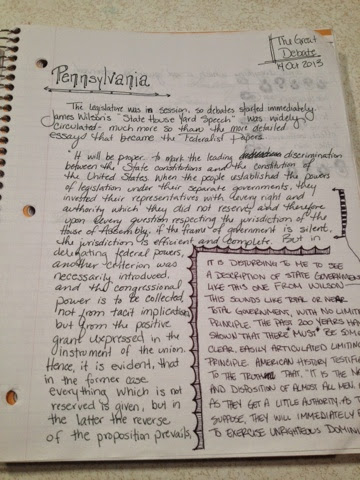 The Great
Debate
14 Oct 2013
Pennsylvania
The legislative was in session, so debates started immediately.
James Wilson's "State House Yard Speech" was widely
circulated- much more so than the more detailed
essays that became the Federalist Papers.
It will be proper to mark the leading discrimination
between the State constitutions and the constitution of
the United States. When the people established the powers
of legislation under their separate governments, they
invested their representatives with every right and
authority which they did not reserve and therefore
upon every question respecting the jurisdiction of the
House of Assembly, if the frame of government is silent,
the jurisdiction is efficient and complete. But in
delegating federal powers,
another criterion was
necessarily introduced,
and the congressional
power is to be collected,
not from tacit implication,
but from the positive
grant expressed in the
instrument of the union.
Hence, it is evident, that
in the former case
everything which is not
reserved is given, but in
the latter the reverse
of the proposition prevails,
IT IS DISTURBING TO ME TO SEE
A DESCRIPTION OF STATE GOVERNMENT
LIKE THIS ONE FROM WILSON-
THIS SOUNDS LIKE TOTAL OR NEAR
TOTAL GOVERNMENT, WITH NO LIMIT
PRINCIPLE. THE PAST 200 YEARS HAV
SHOWN THAT THERE *MUST* BE SIM
CLEAR, EASILY ARTICULATED LIMITIN
PRINCIPLE. AMERICAN HISTORY TESTIFI
TO THE TRUTH THAT, "IT IS THE NA
AND DISPOSITION OF ALMOST ALL MEN,
AS THEY GET A LITTLE AUTHORITY, AS T
SUPPOSE, THEY WILL IMMEDIATELY
TO EXERCISE UNRIGHTEOUS DOMIN